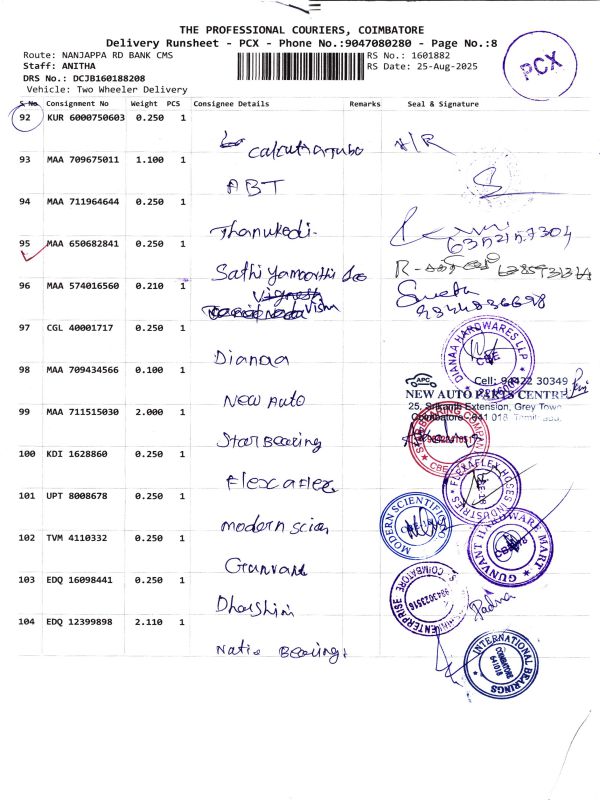 THE PROFESSIONAL COURIERS, COIMBATORE
Delivery Runsheet - PCX - Phone No.:9047080280 - Page No.:8
Route: NANJAPPA RD BANK CMS
RS No.: 1601882
Staff: ANITHA
RS Date: 25-Aug-2025
DRS No.: DCJB160188208
Vehicle: Two Wheeler Delivery
PCX
S.No Consignment No Weight PCS Consignee Details Remarks Seal & Signature
92 KUR 6000750603 0.250 1
93 MAA 709675011 1.100 1 ABT
94 MAA 711964644 0.250 1 Thanukodi
95 MAA 650682841 0.250 1
96 MAA 574016560 0.210 1
97 CGL 40001717 0.250 1 Dianaa
DIANAA HARDWARES LLP
CBE
98 MAA 709434566 0.100 1 New Auto
APC
Cell: 94422 30349
NEW AUTO PARTS CENTRE
25, Srikanth Extension, Grey Town
Coimbatore - 641 018
99 MAA 711515030 2.000 1 Star Bearing
100 KDI 1628860 0.250 1 Flexaflex
FLEXAFLEX HOSES INDUSTRIES
101 UPT 8008678 0.250 1 modern scien
MODERN SCIENTIFIC
102 TVM 4110332 0.250 1 Gunvant
GUNVANT HARDWARE MART
103 EDQ 16098441 0.250 1 Dharshini
ENTERPRISE
COIMBATORE
Padma
104 EDQ 12399898 2.110 1 Natio Bearings
INTERNATIONAL BEARINGS
COIMBATORE
641018